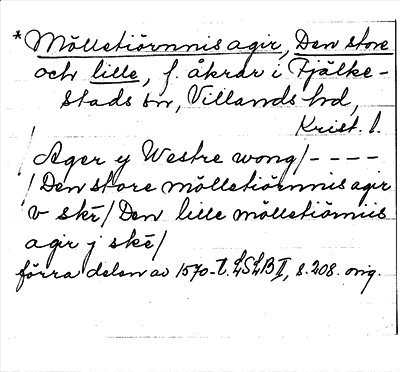 *Mölletiörnnis agir, Den store
och lille, f. åkrar i Fjälke-
stads sn, Villands hd,
Krist. l.
/Ager y Westre wong/----
/Den store mölletiörnnis agir
v skē/Den lille mölletiörniis
agir j skē/
förra delen av 1570-t. LSLB II, s. 208. orig.